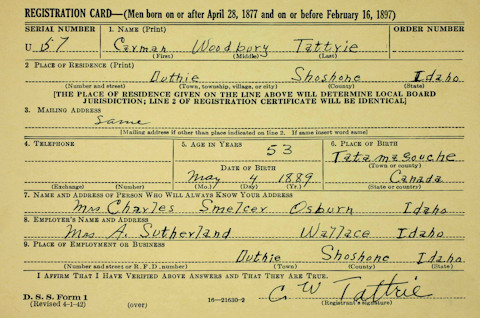 REGISTRATION CARD—(Men born on or after April 28, 1877 and on or before February 16, 1897)
SERIAL NUMBER 1. NAME (Print) ORDER NUMBER
U 57 Carman Woodbury Tattrie
(First) (Middle) (Last)
2. PLACE OF RESIDENCE (Print)
Duthie Shoshone Idaho
(Number and street) (Town, township, village, or city) (County) (State)
[THE PLACE OF RESIDENCE GIVEN ON THE LINE ABOVE WILL DETERMINE LOCAL BOARD
JURISDICTION; LINE 2 OF REGISTRATION CERTIFICATE WILL BE IDENTICAL]
3. MAILING ADDRESS
same
(Mailing address if other than place indicated on line 2. If same insert word same)
4. TELEPHONE 5. AGE IN YEARS 6. PLACE OF BIRTH
53 Tatamagouche
(Town or county)
DATE OF BIRTH
May 4 1889 Canada
(Exchange) (Number) (Mo.) (Day) (Yr.) (State or country)
7. NAME AND ADDRESS OF PERSON WHO WILL ALWAYS KNOW YOUR ADDRESS
Mrs Charles Smelcer Osburn Idaho
8. EMPLOYER'S NAME AND ADDRESS
Mrs. A. Sutherland Wallace Idaho
9. PLACE OF EMPLOYMENT OR BUSINESS
Duthie Shoshone Idaho
(Number and street or R. F. D. number) (Town) (County) (State)
I AFFIRM THAT I HAVE VERIFIED ABOVE ANSWERS AND THAT THEY ARE TRUE.
C W Tattrie
D. S. S. Form 1
(Revised 4-1-42) (over) 16—21630-2 (Registrant's signature)